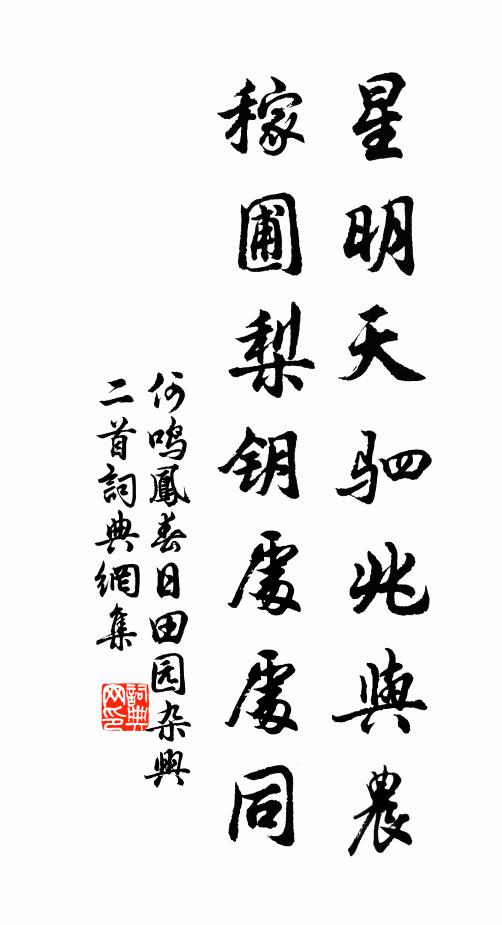 星明天驷兆與農
稼圃梨钥處處同
何鳴鳳春日田园杂興
二首詞典網集
詞典
网印